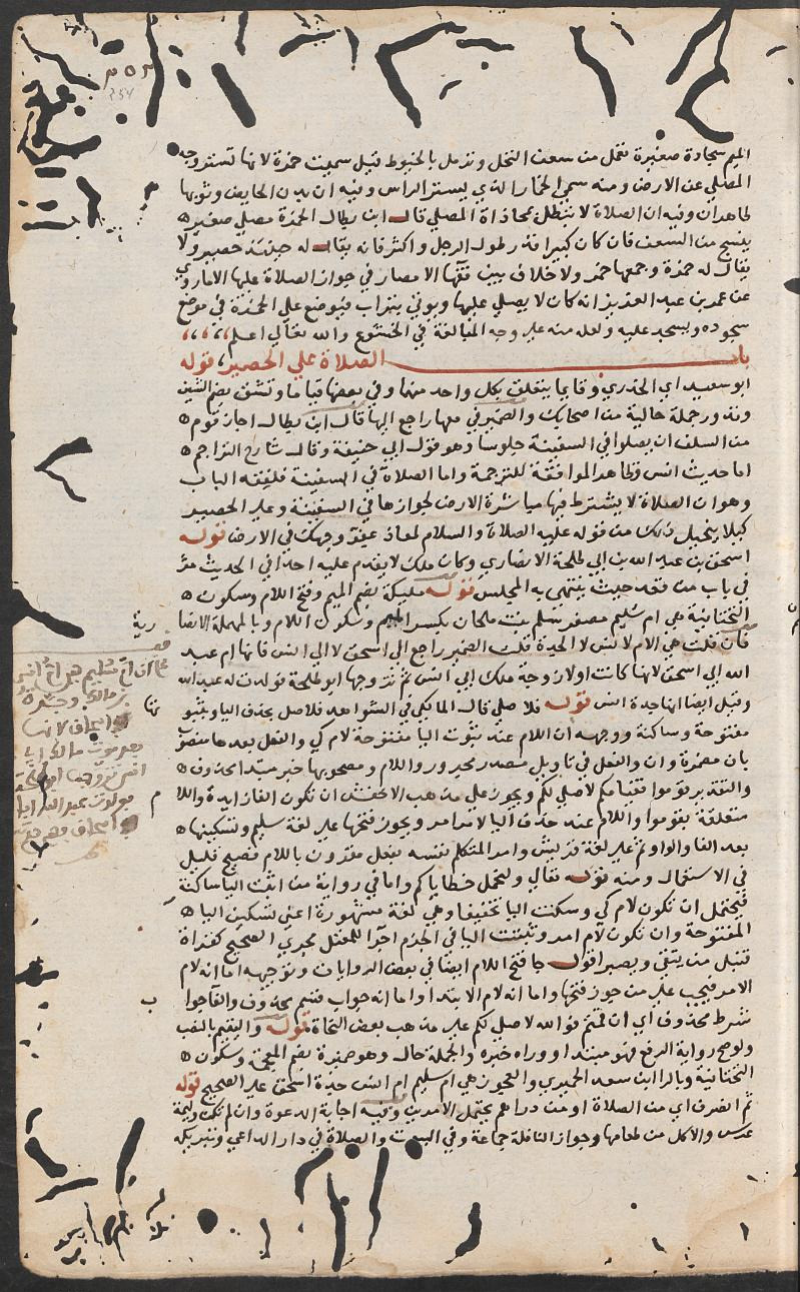 ٢٥٣
254
الميم سجادة صغيرة تعمل من سعف النخل وتزمل بالخيوط قيل سميت خمرة لانها تستر وجه
المصلي عن الارض ومنه سمي الخمار الذي يستر الراس وفيه ان بدن الحايض وثوبها
طاهران وفيه ان الصلاة لا تبطل بمحاذاة المصلي قال ابن بطال الخمرة مصلي صغير
ينسج من السعف فان كان كبيرا قدر طول الرجل واكثر فانه يقال له حينئذ حصير ولا
يقال له خمرة وجمعها خمر ولا خلاف بين فقها الامصار في جواز الصلاة عليها الا ما روي
عن عمر بن عبد العزيز انه كان لا يصلي عليها ويوتي بتراب فيوضع علي الخمرة في موضع
سجوده ويسجد عليه ولعله منه علي وجه المبالغة في الخشوع والله تعالي اعلم
باب الصلاة علي الحصير، قوله
ابو سعيد اي الخدري وقايما يتعلق بكل واحد منهما وفي بعضها قياما وتشق بضم الشين
وتدور جملة حالية من اصحابك والضمير في معها راجع اليها قال ابن بطال اجاز قوم
من السلف ان يصلوا في السفينة جلوسا وهو قول ابي حنيفة وقال شارح التراجم
اما حديث انس فظاهر الموافقة للترجمة واما الصلاة في السفينة فلفقه الباب
وهو ان الصلاة لا يشترط فيها مباشرة الارض لجوازها في السفينة وعلي الحصير
كيلا يتخيل ذلك من قوله عليه الصلاة والسلام لمعاذ عفر وجهك في الارض قوله
اسحق بن عبد الله بن ابي طلحة الانصاري وكان ملك لا يقدم عليه احدا في الحديث مر
في باب من قعد حيث ينتهي به المجلس قوله مليكة بضم الميم وفتح اللام وسكون
التحتانية هي ام سليم مصغر سلم بنت ملحان بكسر الميم وسكون اللام وبالمهملة الانصا
رية
فان قلت هي الام لانس لا الجدة قلت الضمير راجع الي اسحق لا الي انس فانها ام عبد
الله ابي اسحق لانها كانت اولا زوجة ملك ابي انس ثم تزوجها ابو طلحة فولدت له عبد الله
وقيل ايضا انها جدة انس قوله فلاصلي قال المالكي في الشواهد فلاصل بحذف اليا وبثبو
تها
مفتوحة وساكنة ووجهه ان اللام عند ثبوت اليا مفتوحة لام كي والفعل بعدها منصو
بان مضمرة وان والفعل في تاويل مصدر مجرور واللام ومصحوبها خبر مبتدا محذوف
والتقدير قوموا فقيامكم لاصلي لكم ويجوز علي مذهب الاخفش ان تكون الفا زايدة واللا
م
متعلقة بقوموا واللام عند حذف اليا لام امر ويجوز فتحها علي لغة سليم وتسكينها
بعد الفا والواو ثم علي لغة قريش وامر المتكلم نفسه بفعل مقرون باللام فصيح قليل
في الاستعمال ومنه قوله تعالي ولنحمل خطاياكم واما في رواية من اثبت اليا ساكنة
فيحتمل ان تكون لام كي وسكنت اليا تخفيفا وهي لغة مشهورة اعني تسكين اليا
المفتوحة وان تكون لام امر وثبتت اليا في الجزم اجرا للمعتل مجري الصحيح كقراة
قنبل من يتقي ويصبر اقول جا فتح اللام ايضا في بعض الروايات وتوجيهه اما انه لام
الامر فيجب علي من جوز فتحها واما انه لام الابتدا واما انه جواب قسم محذوف والفا جوا
ب
شرط محذوف اي ان قمتم فوالله لاصلي لكم علي مذهب بعض النحاة قوله واليتيم بالنصب
ولو صح رواية الرفع فهو مبتدا ووراه خبره والجملة حال وهو ضميرة بضم المعجمة وسكون
التحتانية وبالرا ابن سعد الحميري والعجوز هي ام سليم ام انس جدة اسحق علي الصحيح قوله
ثم انصرف اي من الصلاة او من دارهم يحتمل الامرين وفيه اجابة الدعوة وان لم تكن وليمة
عرس والاكل من طعامها وجواز النافلة جماعة وفي البيت والصلاة في دار الداعي وتبريكه